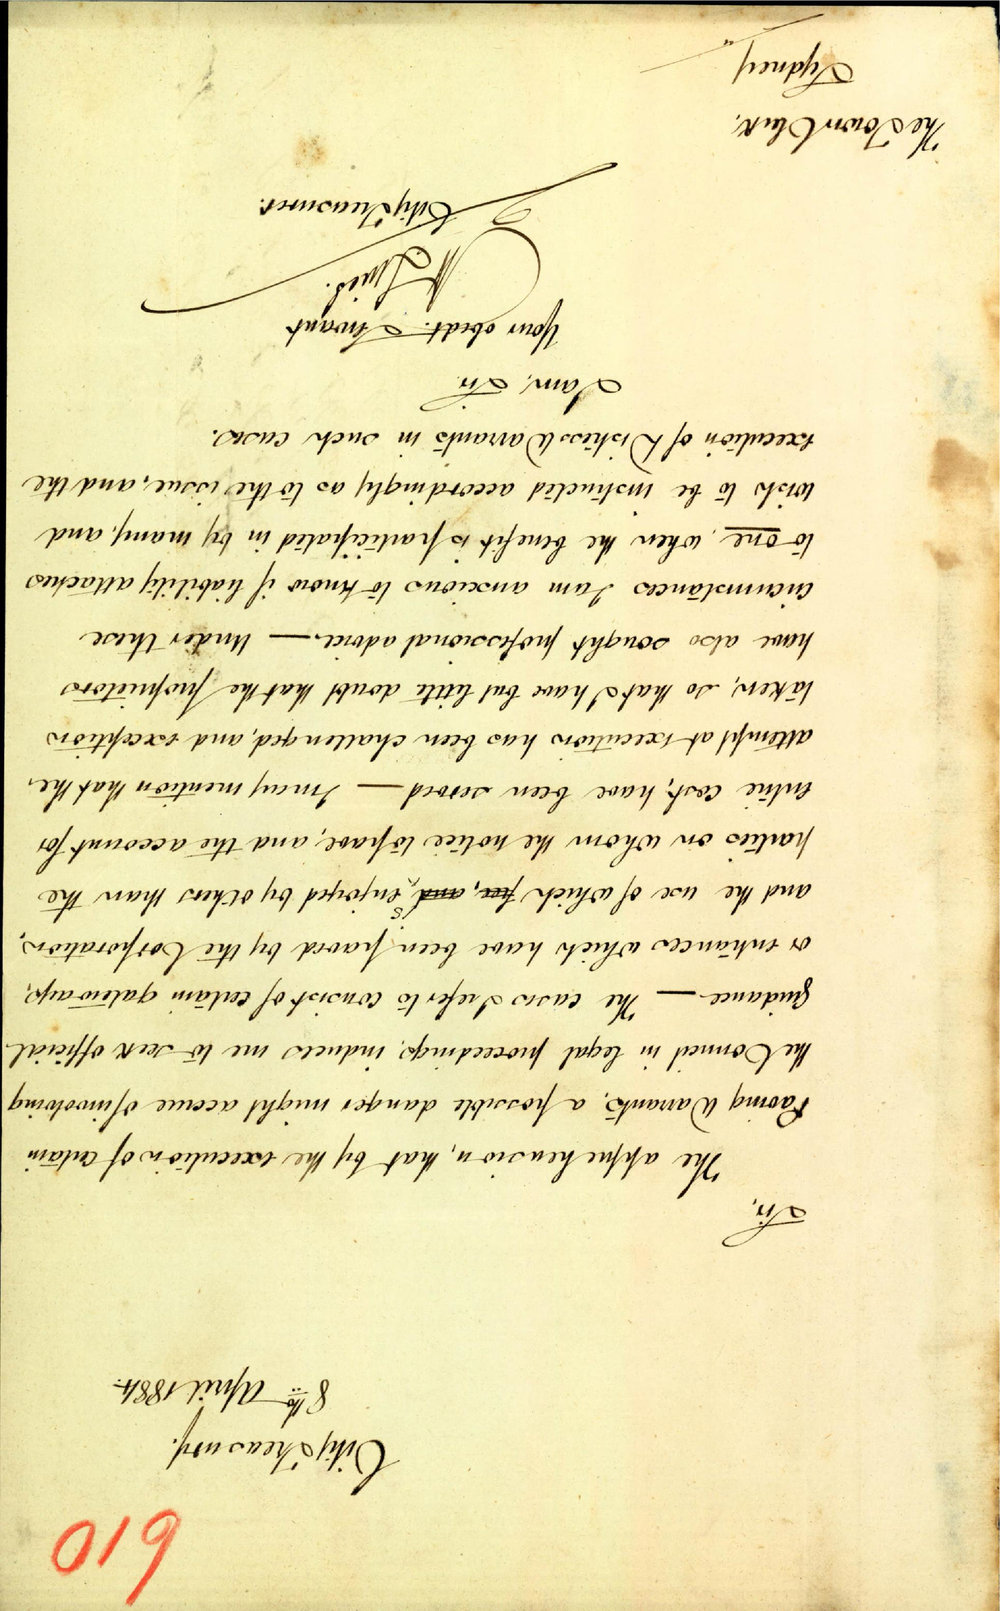 610
City Treasury.
8th April 1884.
Sir,
The apprehension, that by the execution of certain
Paving Warrants, a possible danger might accrue of involving
the Council in legal proceedings, induces me to seek official
guidance — The cases I refer to consist of certain gateways,
or entrances which have been paved by the Corporation,
and the use of which is enjoyed by others than the
parties on whom the notice to pave, and the account for
entire cost, have been served — I may mention that the
attempt at execution has been challenged, and exception
taken, so that I have but little doubt that the proprietors
have also sought professional advice. — Under these
circumstances I am anxious to know if liability attaches
to one, when the benefit is participated in by many, and
wish to be instructed accordingly as to the issue, and the
execution of Distress Warrants in such cases.
I am, Sir.
Your obedt. Servant
City Treasurer.
The Town Clerk,
Sydney